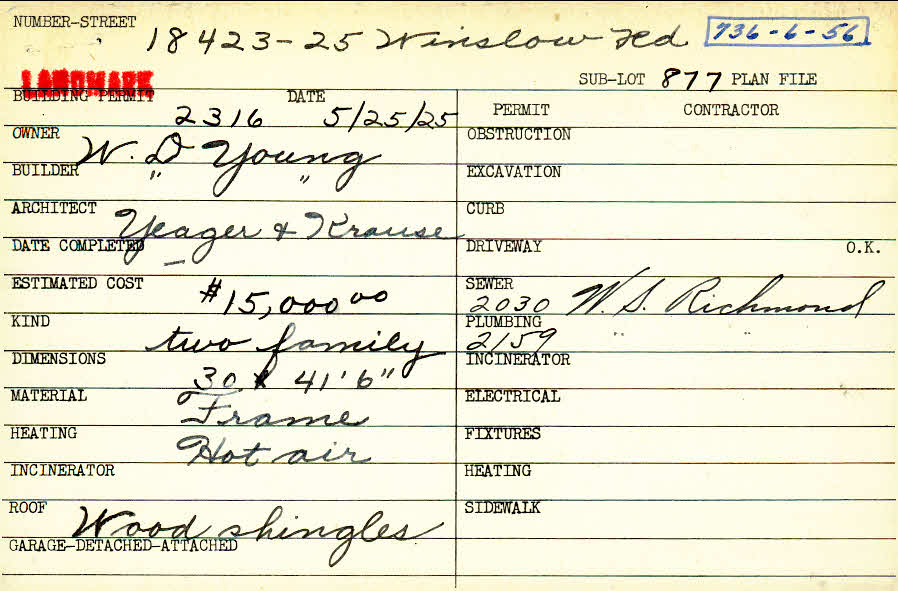 NUMBER-STREET 18423-25 Winslow Rd 736-6-56
LANDMARK SUB-LOT 877 PLAN FILE
BUILDING PERMIT 2316 DATE 5/25/25 PERMIT CONTRACTOR
OWNER W. D Young OBSTRUCTION
BUILDER " " EXCAVATION
ARCHITECT Yeager & Krause CURB
DATE COMPLETED — DRIVEWAY O.K.
ESTIMATED COST #15,000 00 SEWER 2030 W. S. Richmond
KIND two family PLUMBING 2159 " "
DIMENSIONS 30 x 41'6" INCINERATOR
MATERIAL Frame ELECTRICAL
HEATING Hot air FIXTURES
INCINERATOR HEATING
ROOF Wood shingles SIDEWALK
GARAGE-DETACHED-ATTACHED